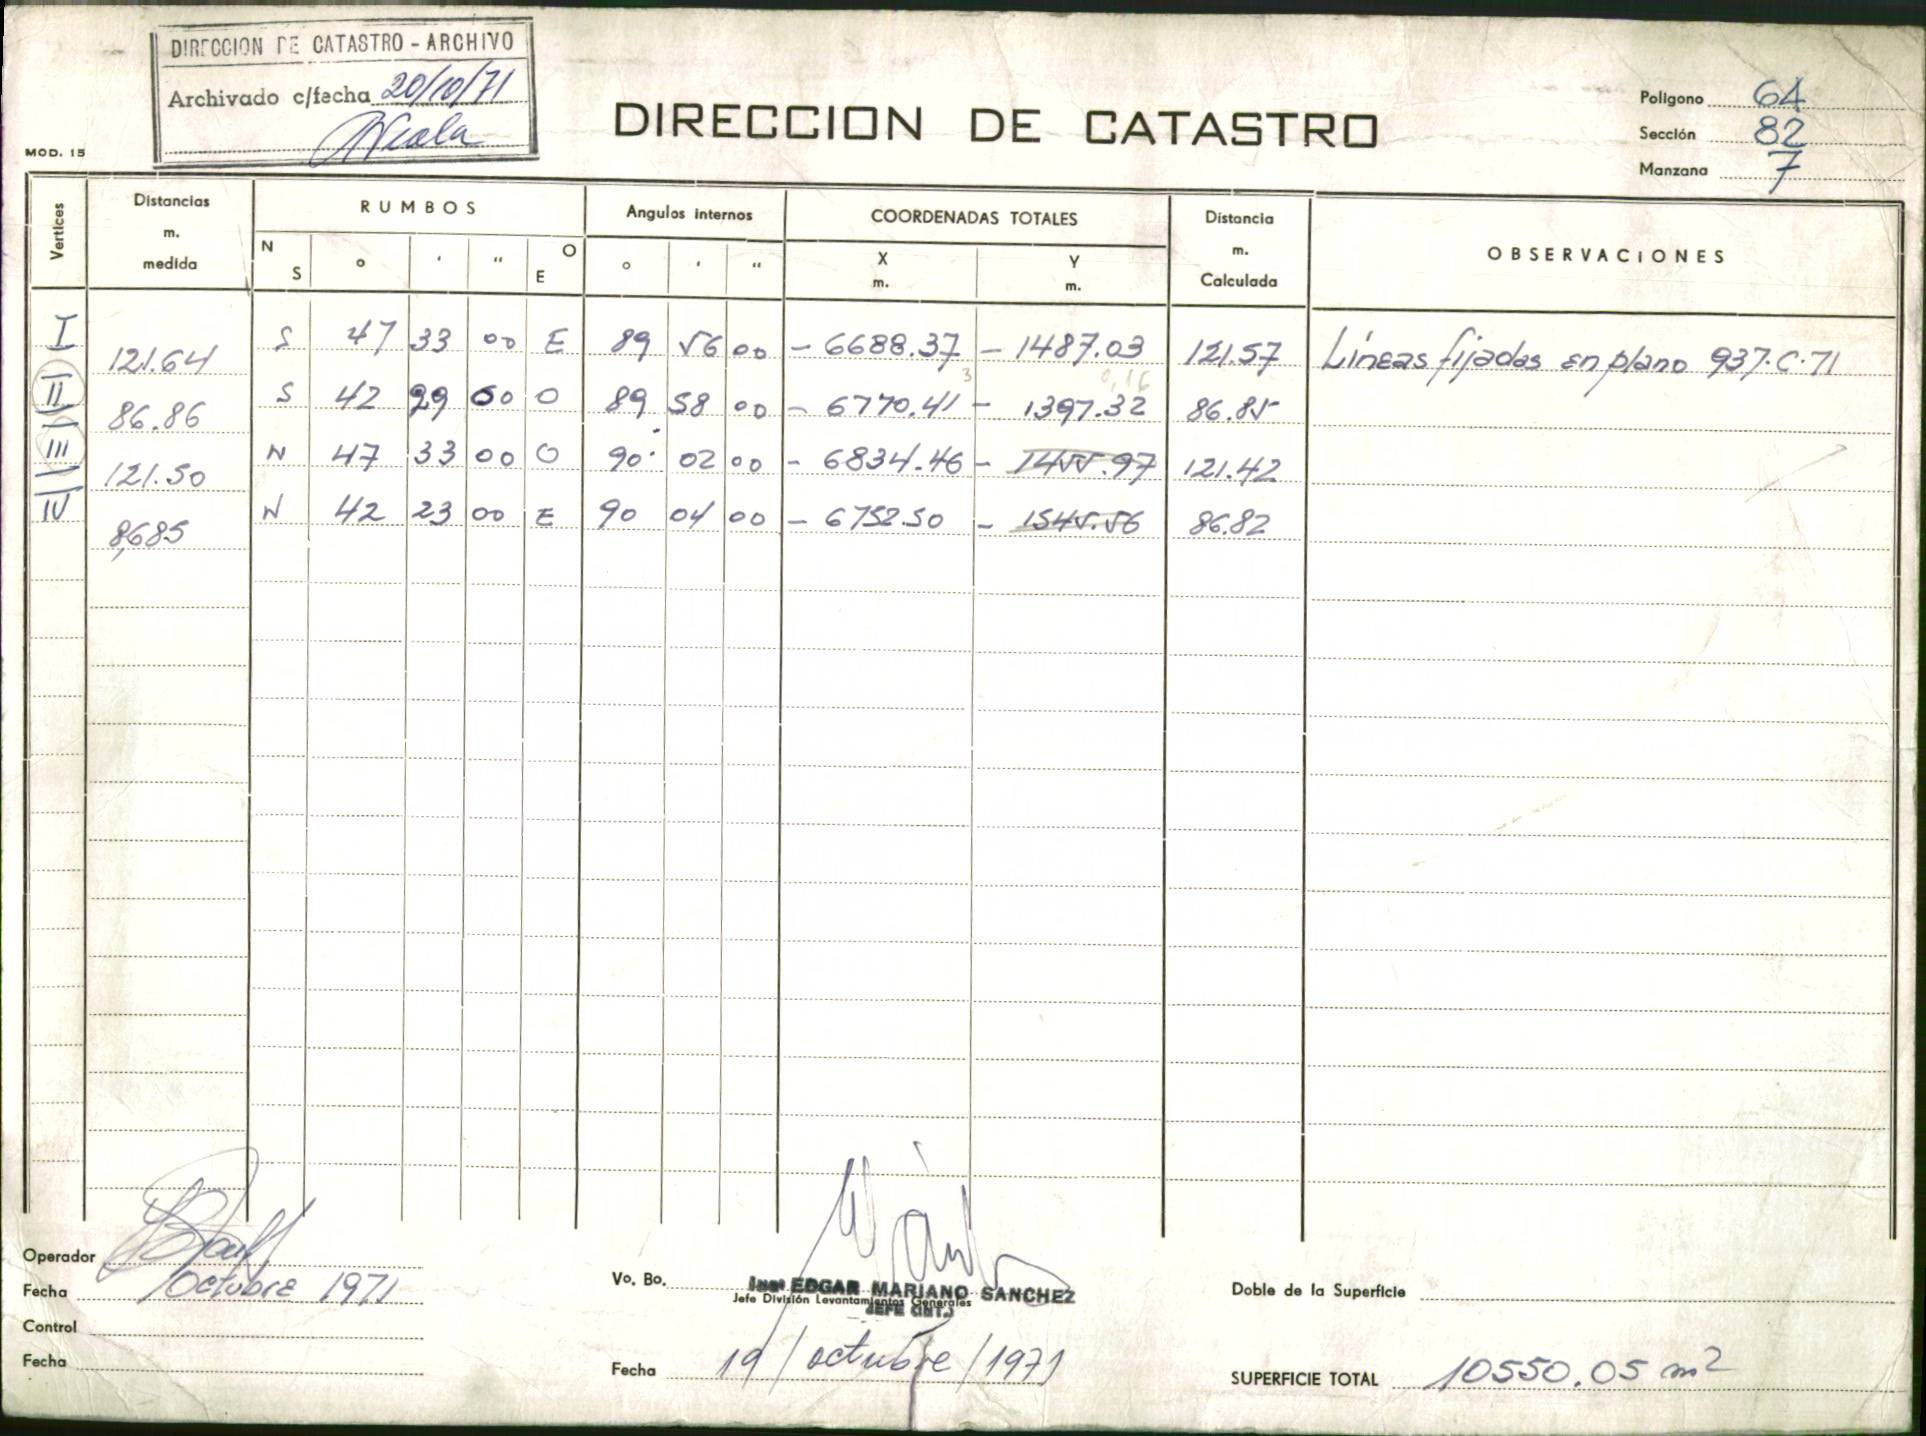 DIRECCION DE CATASTRO - ARCHIVO
Archivado c/fecha 20/10/71
MOD. 15
DIRECCION DE CATASTRO
Poligono 64
Sección 82
Manzana 7
Vertices Distancias m. medida RUMBOS N S ° ' " O E Angulos internos ° ' " COORDENADAS TOTALES X m. Y m. Distancia m. Calculada OBSERVACIONES
I 121.64 S 47 33 00 E 89 56 00 - 6688.37 - 1487.03 121.57 Líneas fijadas en plano 937.C.71
II 86.86 S 42 29 00 O 89 58 00 - 6770.41 - 1397.32 86.85
III 121.50 N 47 33 00 O 90 02 00 - 6834.46 - 1455.97 121.42
IV 8,685 N 42 23 00 E 90 04 00 - 6752.50 - 1545.56 86.82
Operador
Fecha /Octubre 1971
Control
Fecha
Vo. Bo.
EDGAR MARIANO SANCHEZ
Jefe División Levantamientos Generales
JEFE (INT.)
Fecha 19/octubre/1971
Doble de la Superficie
SUPERFICIE TOTAL 10550.05 m2